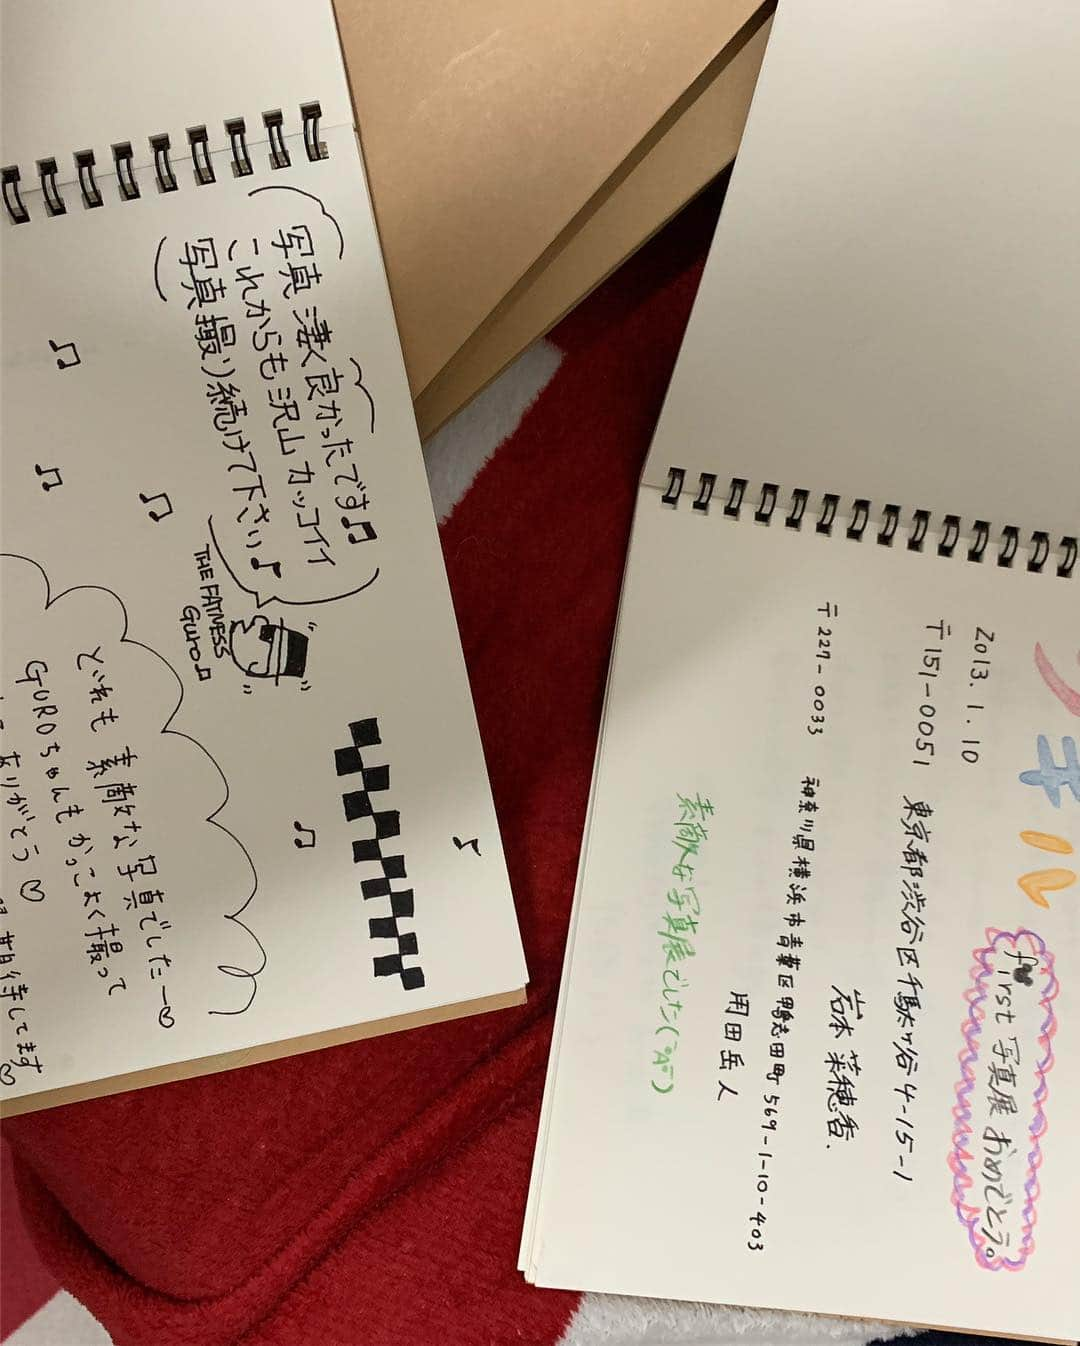 写真 凄く良かったです♫
これからも沢山カッコイイ
写真撮り続けて下さい♪
THE FATNESS
GURO♫
どれも 素敵な 写真でしたー♡
GUROちゃんもかっこよく撮って
ありがとう♡
期待してます♡
キル
first 写真展 おめでとう。
2013.1.10
〒151-0051 東京都渋谷区千駄ヶ谷4-15-1
岩本 菜穂香.
〒227-0033 神奈川県横浜市青葉区鴨志田町569-1-10-403
用田岳人
素敵な写真展でした(°A°)